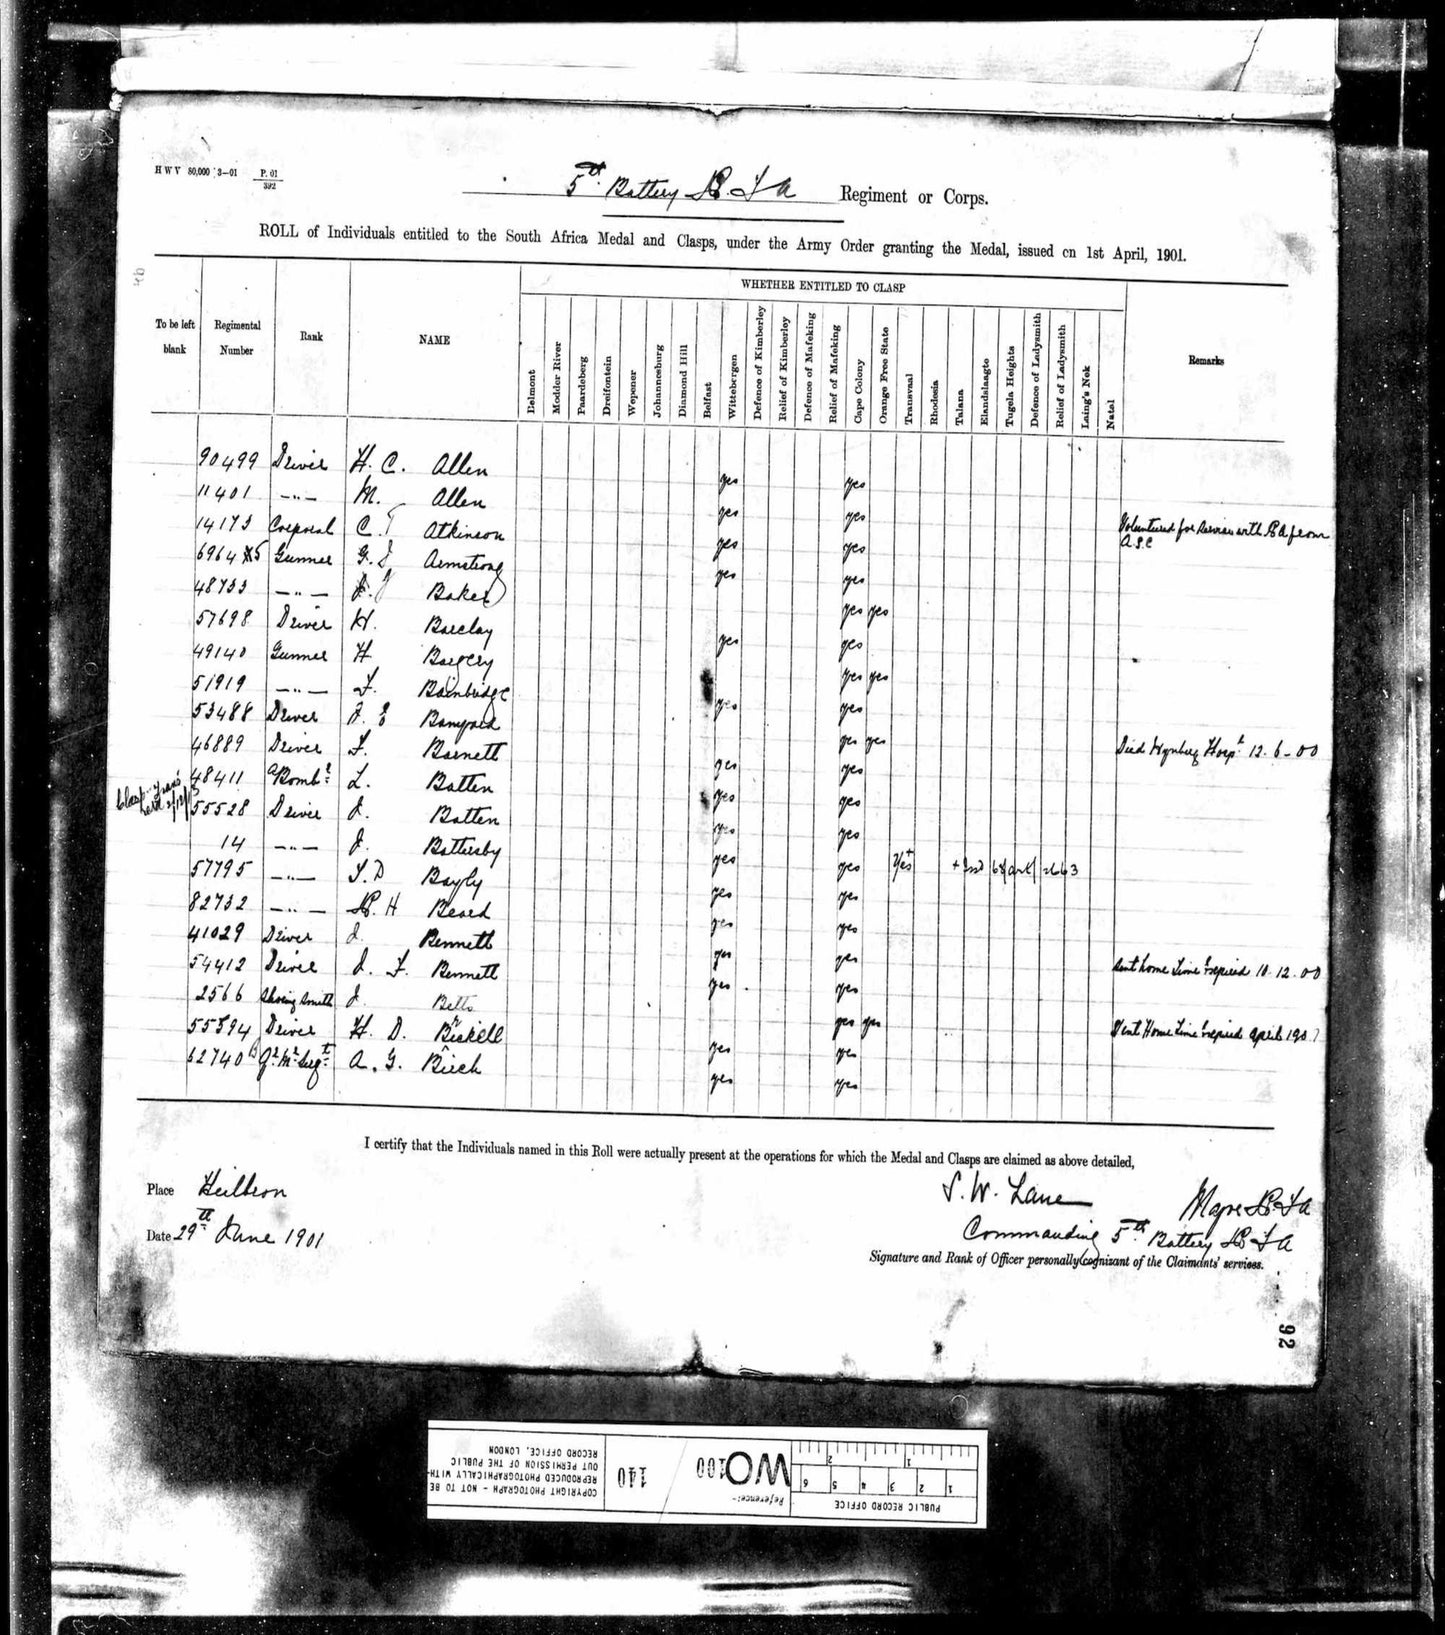 H W V 80,000 3—01 P. 01
392
5th Battery R F A Regiment or Corps.
ROLL of Individuals entitled to the South Africa Medal and Clasps, under the Army Order granting the Medal, issued on 1st April, 1901.
WHETHER ENTITLED TO CLASP
To be left blank Regimental Number Rank NAME Belmont Modder River Paardeberg Dreifontein Wepener Johannesburg Diamond Hill Belfast Wittebergen Defence of Kimberley Relief of Kimberley Defence of Mafeking Relief of Mafeking Cape Colony Orange Free State Transvaal Rhodesia Talana Elandslaagte Tugela Heights Defence of Ladysmith Relief of Ladysmith Laing's Nek Natal Remarks
90499 Driver H. C. Allen yes yes
11401 —"— M. Allen yes yes
14173 Corporal C. T Atkinson yes yes Voluntured for Service with RA from A.S.C
69645 Gunner G. J Armstrong yes yes
48733 —"— J Baker yes yes
57698 Driver H. Barclay yes yes
49140 Gunner H Bargery yes yes
51919 —"— F. Bainbridge yes yes
53488 Driver J. E Banyard yes yes
46889 Driver F. Barnett yes yes Died Wynberg Hospl 12. 6 - 00
48411 aBombr L. Batten yes yes
55528 Driver J. Batten yes yes
14 —"— J. Battersby yes yes
57795 —"— T. D Bayly yes yes Yes+
82732 —"— R. H Beard yes yes
41029 Driver J. Bennett yes yes
54412 Driver J. F. Bennett yes yes Sent home Time Expired 10. 12. 00
2566 Shoeing Smith J. Betts yes yes
55394 Driver H. D. Bickell yes yes Sent Home Time Expired April 190
62740 Qr Mr Sergt A. G. Birch yes yes
I certify that the Individuals named in this Roll were actually present at the operations for which the Medal and Clasps are claimed as above detailed,
Place Heilbron
Date 29th June 1901
S. W. Lane Major R F A
Commanding 5th Battery R F A
Signature and Rank of Officer personally cognizant of the Claimants' services.
92
PUBLIC RECORD OFFICE
1 2 3 4 5 6
1 2
Reference:-
WO 100
140
COPYRIGHT PHOTOGRAPH - NOT TO BE
REPRODUCED PHOTOGRAPHICALLY WITH-
OUT PERMISSION OF THE PUBLIC
RECORD OFFICE, LONDON